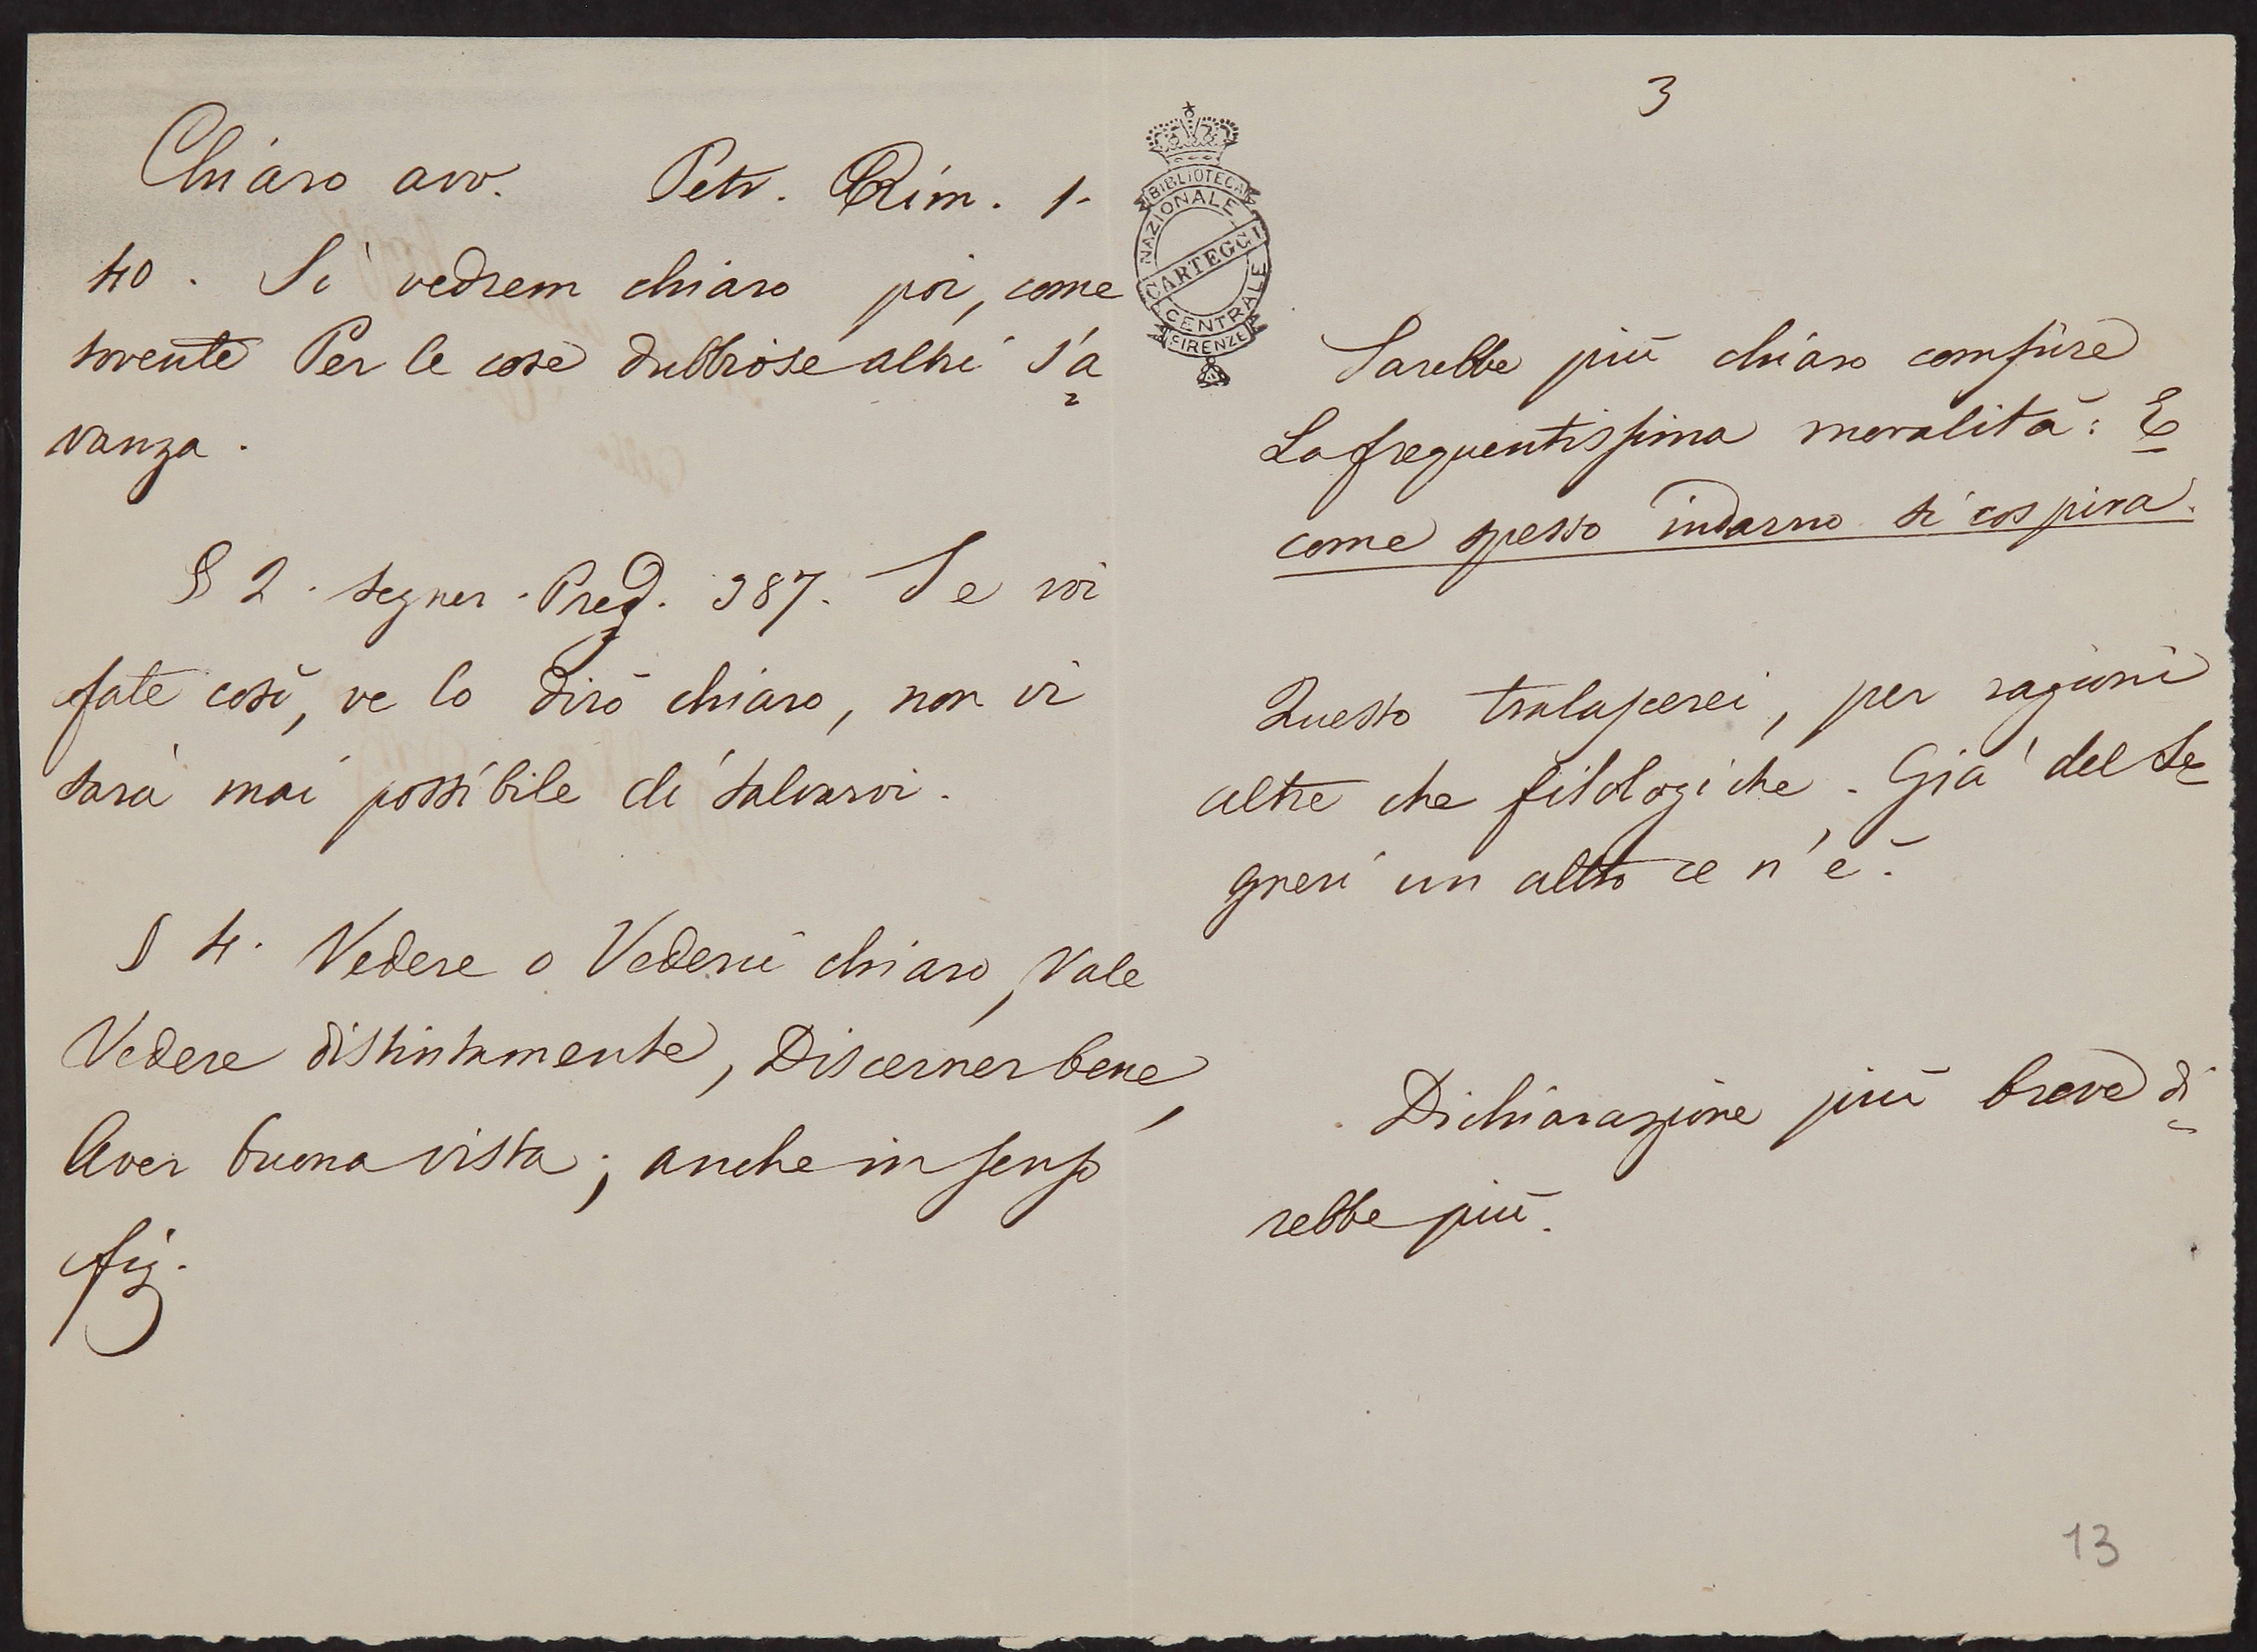 Chiaro avv. Petr. Rim. 1.
40. Sì vedrem chiaro poi, come
sovente Per le cose dubbiose altri s'a
vanza.
§ 2. Segner. Pred. 387. Se voi
fate così, ve lo dirò chiaro, non vi
sarà mai possibile di salvarvi.
§ 4. Vedere o Vederci chiaro, Vale
Vedere distintamente, Discerner bene,
Aver buona vista; anche in senso
fig.
BIBLIOTECA
NAZIONALE
CARTEGGI
CENTRALE
FIRENZE
3
Sarebbe più chiaro compiere
La frequentissima moralità: E
come spesso indarno si sospira.
Questo tralascerei, per ragioni
altre che filologiche. Già del Se
gneri un altro ce n'è.
Dichiarazione più breve di-
rebbe più.
13